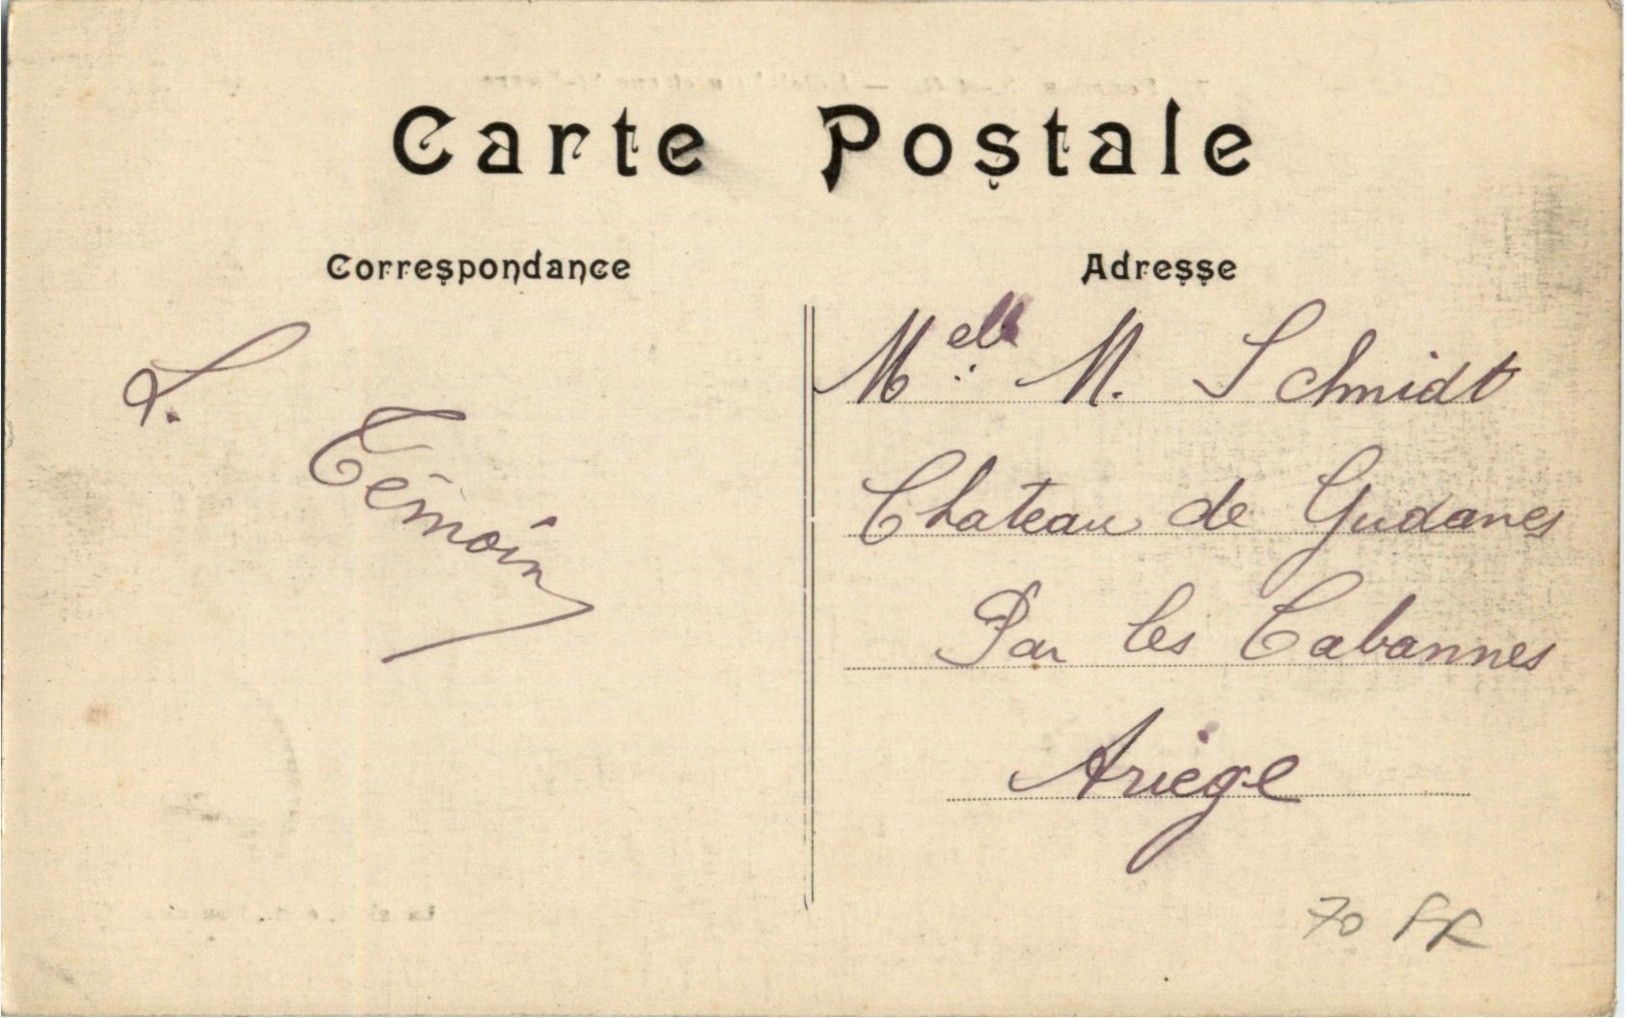 Carte Postale
Correspondance
Adresse
S. Témoin
Melle M. Schmidt
Chateau de Gudanes
Par les Cabannes
Ariège
70 FR